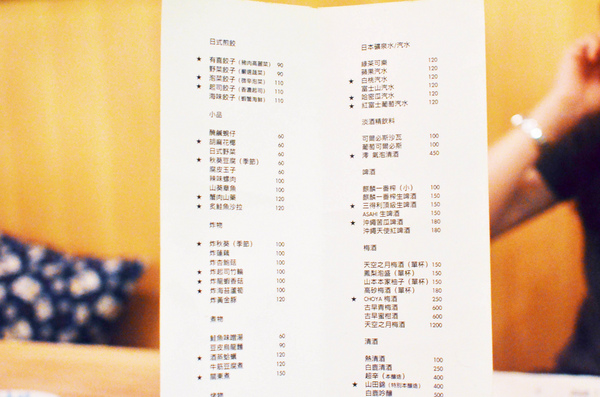 日式煎餃
★ 有喜餃子（豬肉高麗菜） 90
野菜餃子（嚴選蔬菜） 90
★ 泡菜餃子（換辛泡菜） 110
★ 起司餃子（香濃起司） 110
海味餃子（蝦蟹海鮮） 110
小品
醃鹹蜆仔 60
★ 胡麻花椰 60
日式野菜 60
★ 秋葵豆腐（季節） 60
腐皮玉子 60
辣味螺肉 100
山葵章魚 100
★ 蟹肉山藥 120
★ 炙鮭魚沙拉 120
炸物
★ 炸秋葵（季節） 100
炸蓮藕 100
炸杏鮑菇 100
★ 炸起司竹輪 100
★ 炸龍蝦香菇 100
★ 炸海苔蘆筍 100
★ 炸黃金蘇 120
煮物
鮭魚味噌湯 60
豆皮烏龍麵 90
★ 酒蒸蛤蠣 120
牛筋豆腐煮 120
★ 關東煮 150
烤物
日本礦泉水/汽水
綠茶可樂 120
蘋果汽水 120
★ 白桃汽水 120
富士山汽水 120
★ 哈密瓜汽水 120
★ 紅富士葡萄汽水 120
淡酒精飲料
可爾必斯沙瓦 100
葡萄可爾必斯 100
★ 澪 氣泡清酒 450
啤酒
麒麟一番榨（小） 100
麒麟一番榨生啤酒 150
★ 三得利頂級生啤酒 150
ASAHI 生啤酒 150
★ 沖繩苦瓜啤酒 180
沖繩天使紅啤酒 180
梅酒
天空之月梅酒（單杯） 150
鳳梨泡盛（單杯） 150
山本本家柚子（單杯） 150
高砂梅酒（單杯） 180
★ CHOYA 梅酒 250
古早青梅酒 600
古早蜜柑酒 600
天空之月梅酒 1200
清酒
熱清酒 100
白鹿清酒 250
超辛（本釀造） 400
★ 山田錦（特別本釀造） 400
白鹿吟釀 500